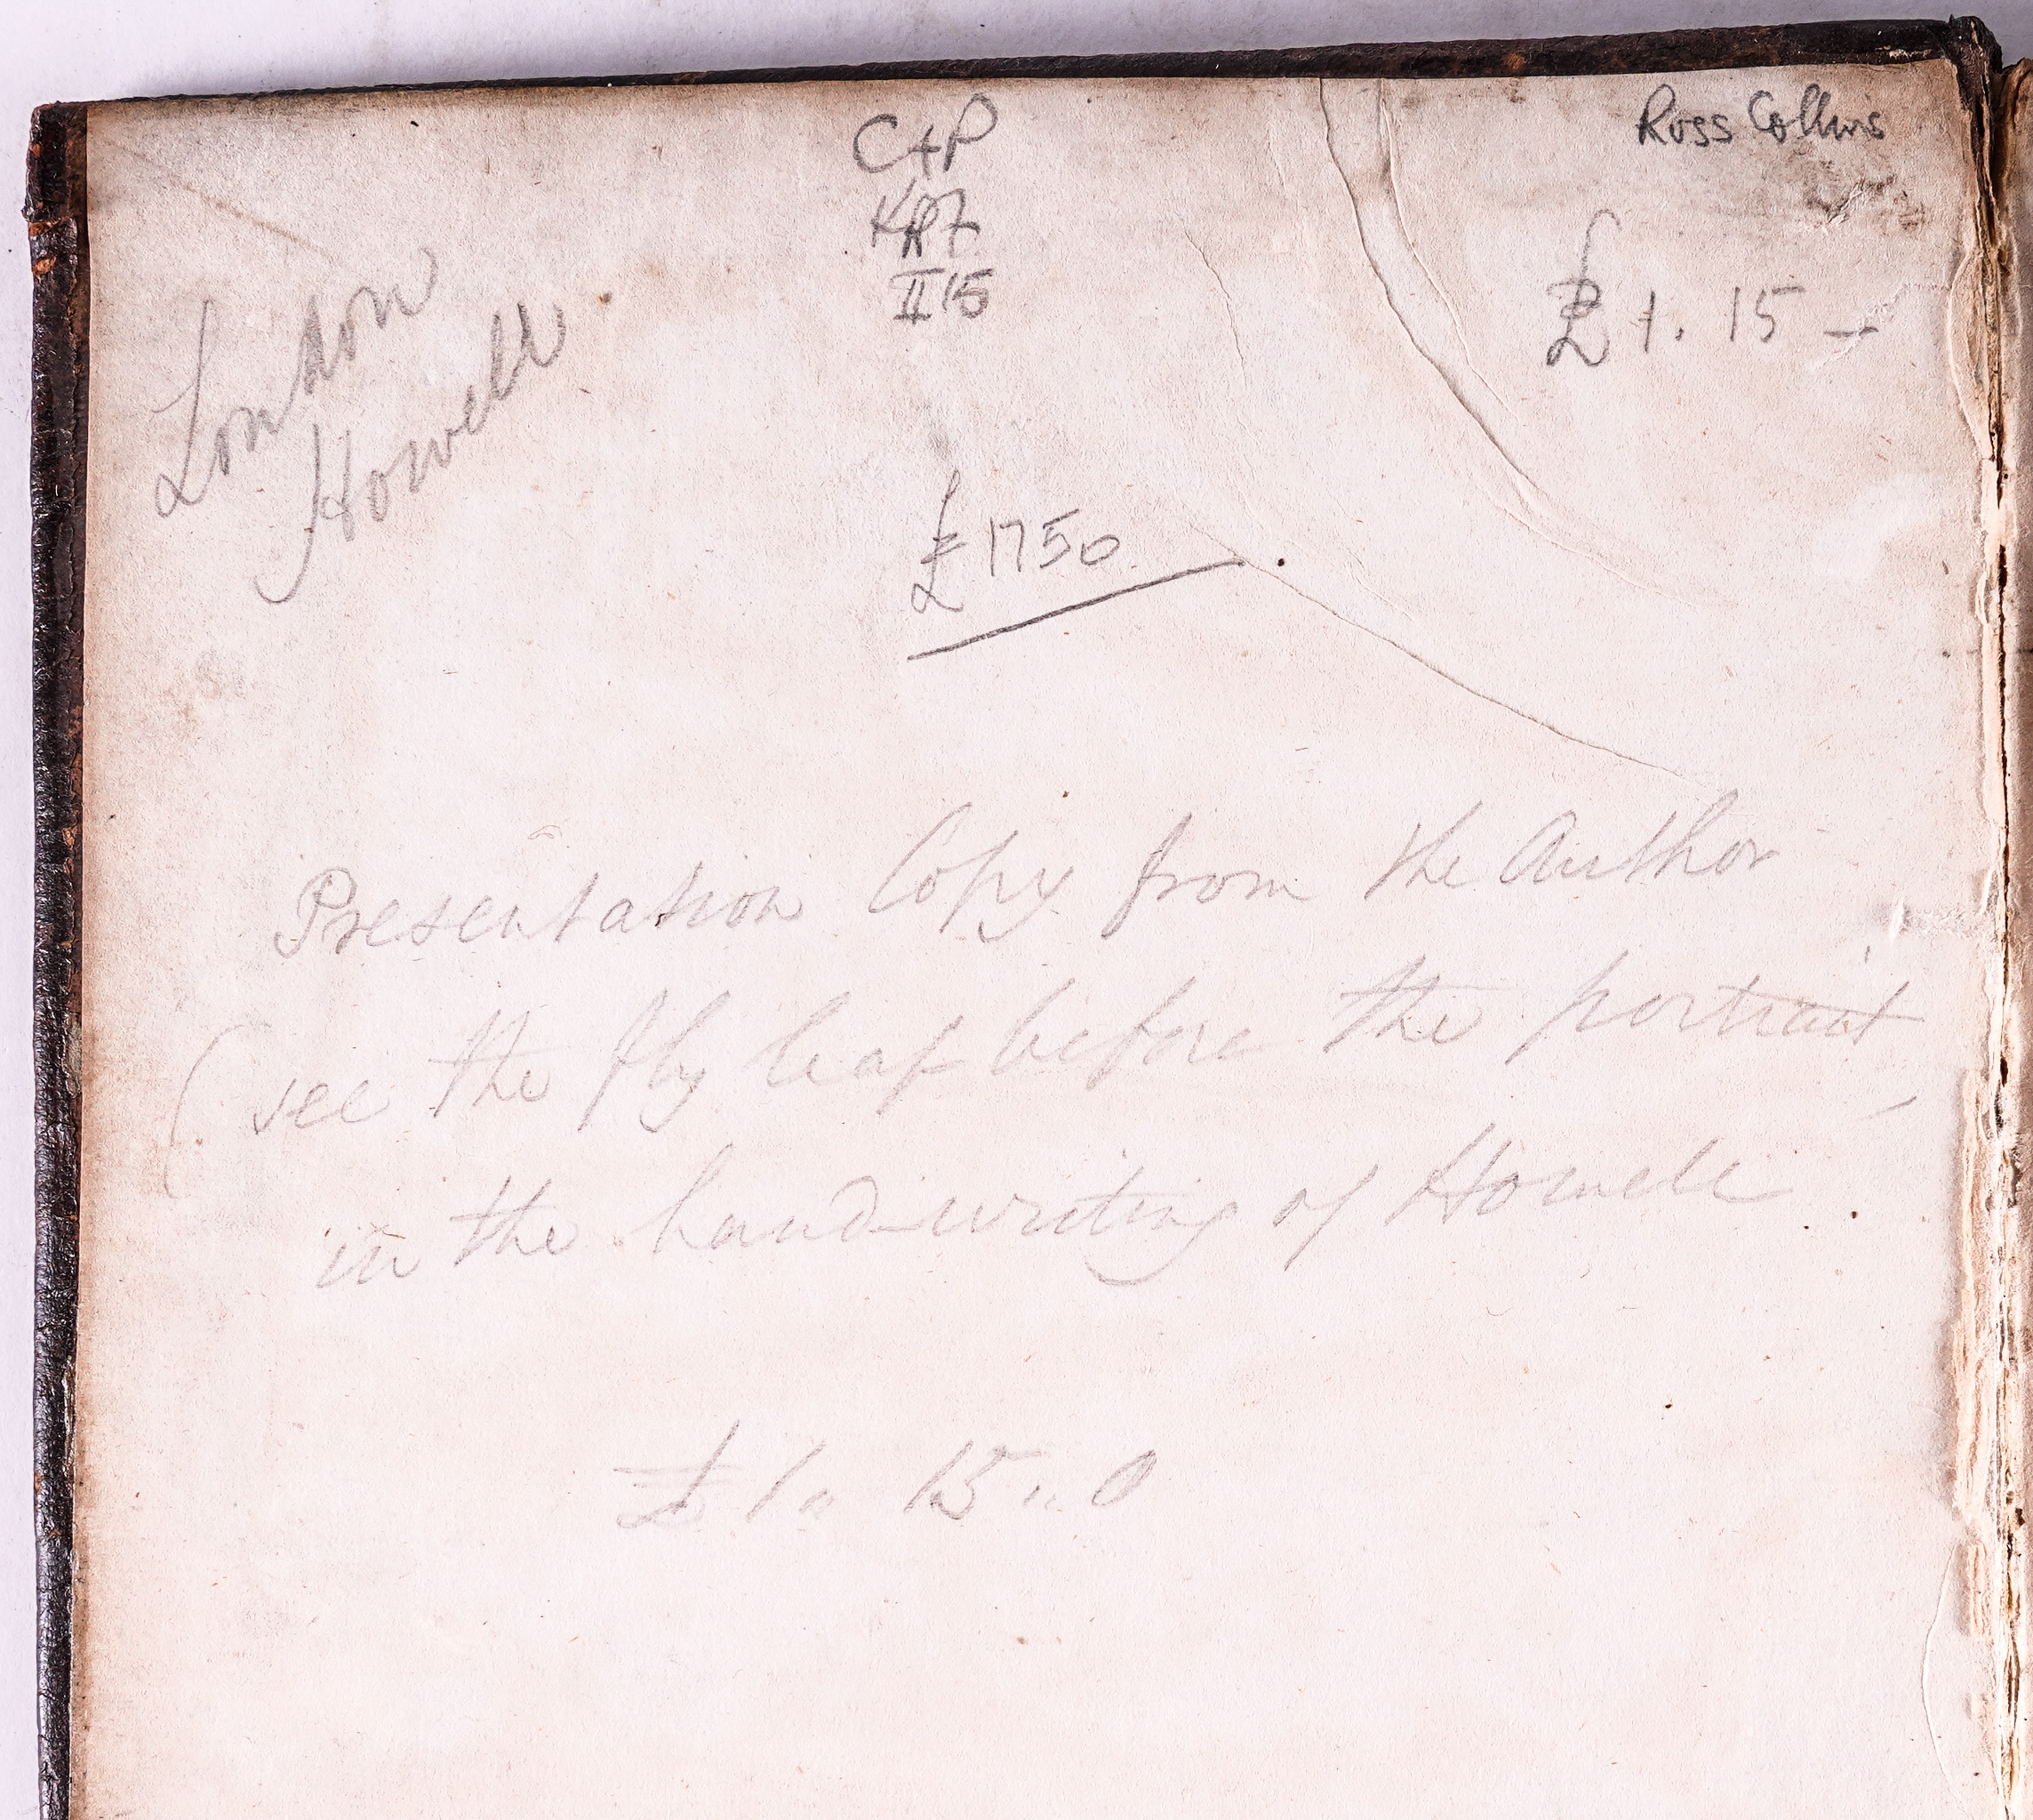 Ross Collins
C+P
II 15
£1. 15 –
London
Howell
£1750
Presentation Copy from the Author
(see the fly leaf before the portrait)
in the handwriting of Howell.
£1 " 15 " 0